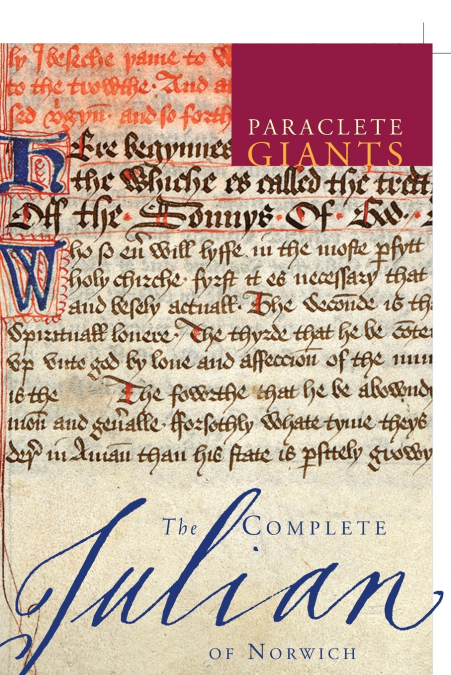 ly J beseche yame to w
to the trowthe · And a
sed v̄gyn · and so forth
PARACLETE
GIANTS
Here begynnes
the Whiche es called the tret
Off the · Sonnys · Of · God ·
Who so eū will lyffe in the moste pfytt
holy chirche · fyrst it es necessary that
and besely actuall · The seconde is th
Spirituall louere · The thyrde that he be
vp vnto god by loue and affeccion of the
is the The fowrthe that he be abownd
and geūalle · fforsothly whate tyme theys
in A man than his state is pfittely growy
The COMPLETE
Julian
OF NORWICH